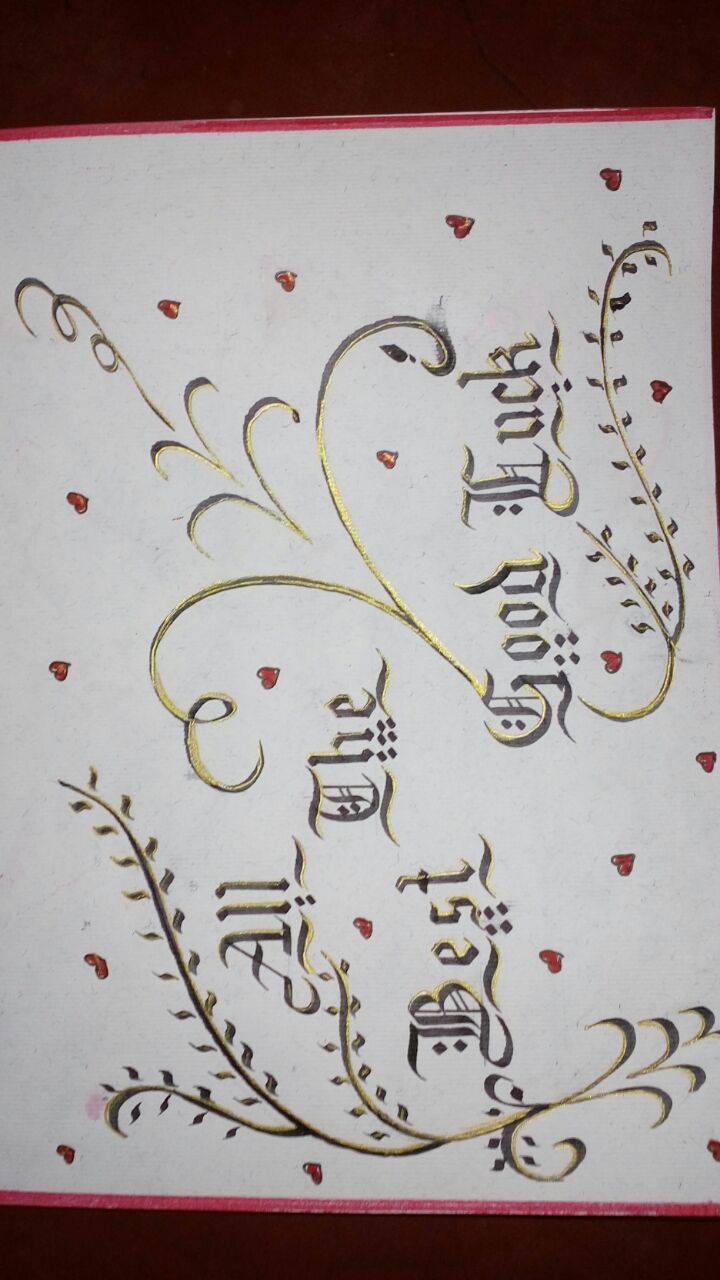 All
The
Best
Good Luck